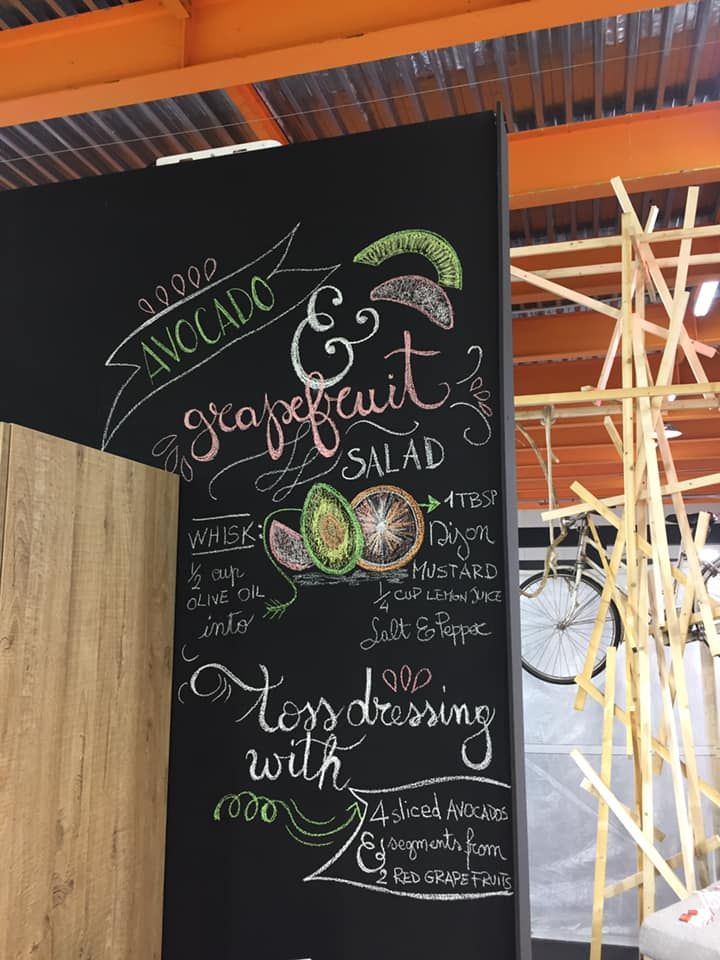 AVOCADO
&
grapefruit
SALAD
WHISK:
1/2 cup
OLIVE OIL
into
1 TBSP
Dijon
MUSTARD
1/4 CUP LEMON JUICE
Salt & Pepper
toss dressing
with
4 sliced AVOCADOS
& segments from
2 RED GRAPEFRUITS